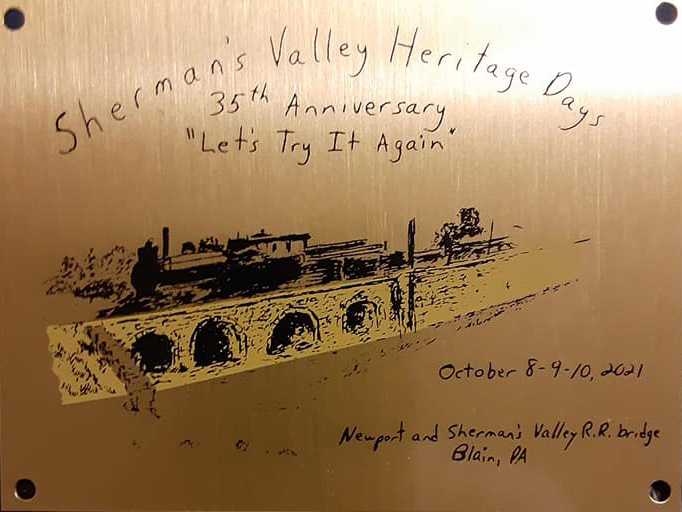 Sherman's Valley Heritage Days
35th Anniversary
"Let's Try It Again"
October 8-9-10, 2021
Newport and Sherman's Valley R.R. bridge
Blain, PA